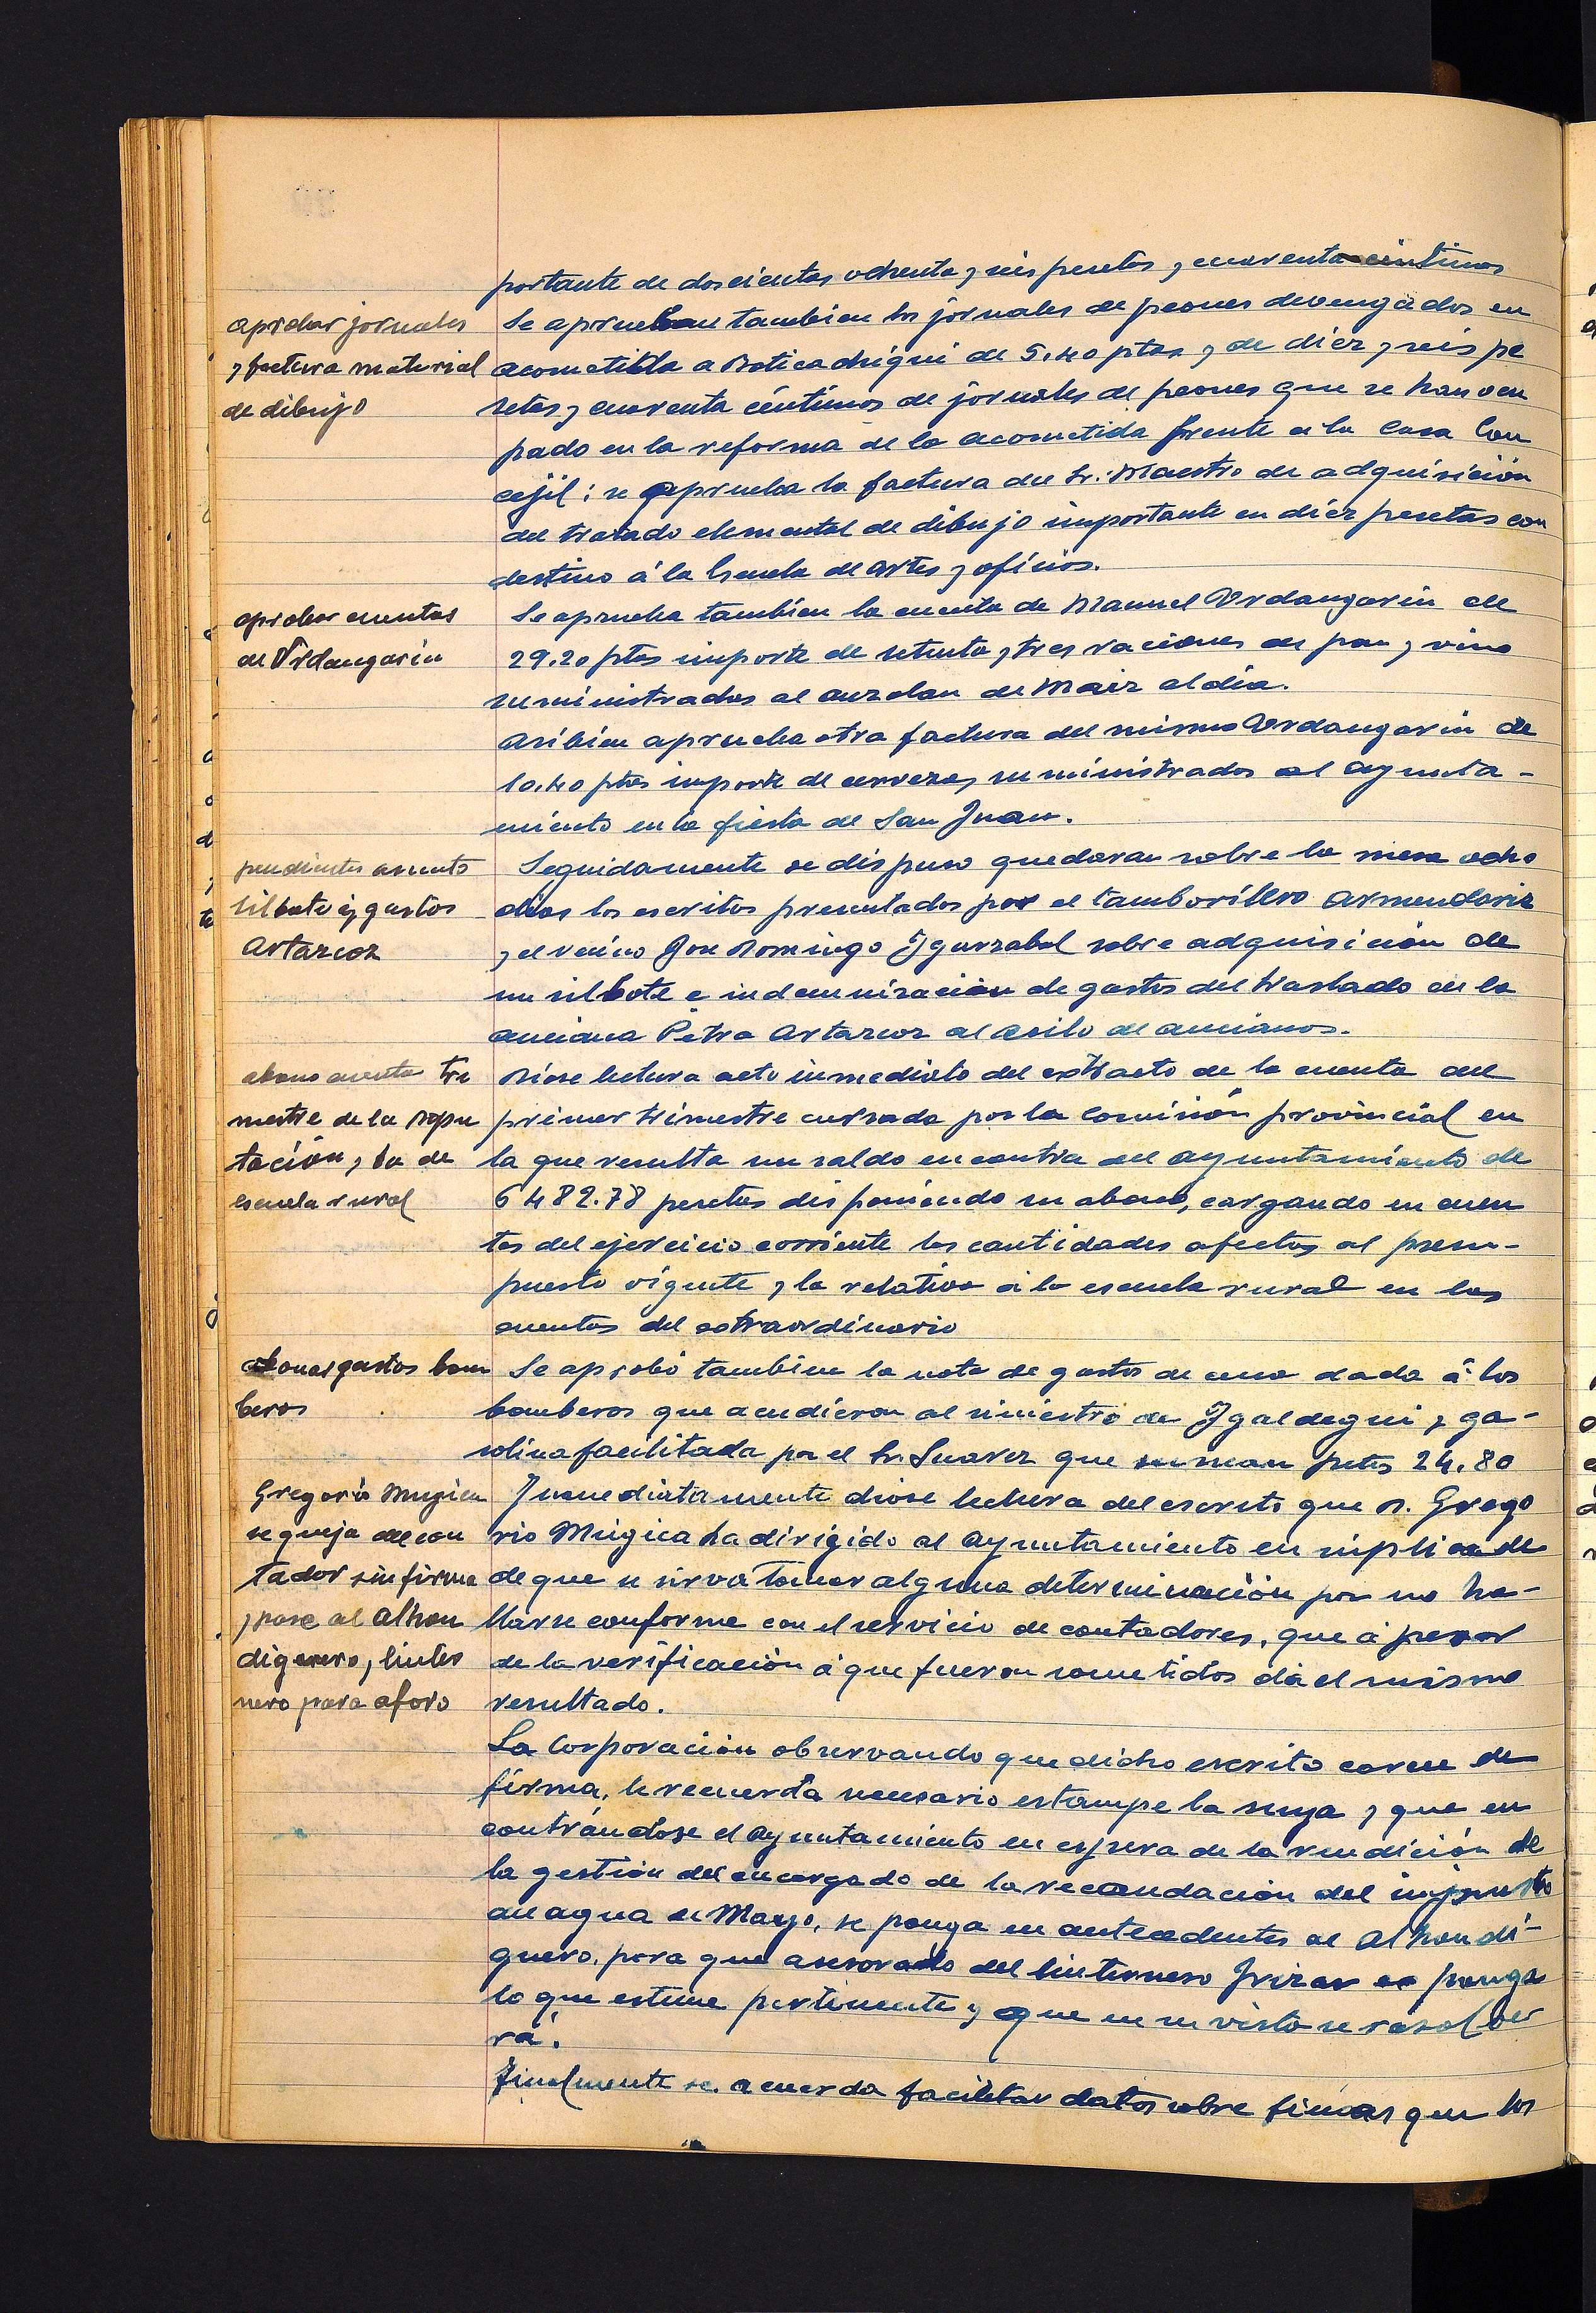 portante de doscientas ochenta y seis pesetas y cuarenta céntimos
aprobar jornales
y factura material
de dibujo
Se aprueban tambien los jornales de peones devengados en
acometida a Boticachiqui de 5.40 ptas y de diez y seis pe
setas y cuarenta céntimos de jornales de peones que se han ocu
pado en la reforma de la acometida frente a la Casa Con
cejil; se aprueba la factura del Sr. Maestro de adquisición
del tratado elemental de dibujo importante en diez pesetas con
destino á la Escuela de artes y oficios.
aprobar cuentas
de Urdangarin
Se aprueba tambien la cuenta de Manuel Urdangarin de
29.20 ptas importe de setenta y tres raciones de pan y vino
suministrados al auzolan de Maiz aldia.
Asibien aprueba otra factura del mismo Urdangarin de
10.40 ptas importe de cervezas suministrados al ayunta-
miento en la fiesta de San Juan.
pendientes asunto
silbote y gastos
Artazcoz
Seguidamente se dispuso quedaran sobre la mesa ocho
dias los escritos presentados por el tamborillero Armendariz
y el vecino Jose Domingo Ygarzabal sobre adquisición de
un silbote e indemnizacion de gastos del traslado de la
anciana Petra Artazcoz al asilo de ancianos.
abono cuenta tri
mestre de la Dipu
tación y la de
escuela rural
Diose lectura acto inmediato del extracto de la cuenta del
primer trimestre cursada por la Comisión provincial en
la que resulta un saldo en contra del ayuntamiento de
6482.78 pesetas disponiendo su abono, cargando en cuen
tas del ejercicio corriente las cantidades afectas al presu-
puesto vigente y la relativa a la escuela rural en las
cuentas del extraordinario
abonar gastos bom
beros
Se aprobó tambien la nota de gastos de cena dada á los
bomberos que acudieron al siniestro de Ygaldegui y ga-
solina facilitada por el Sr. Suarez que suman ptas 24.80
Gregorio Mugica
se queja del con
tador sin firma
y pase al Alhon
digero y linter
nero para aforo
Inmediatamente diose lectura del escrito que D. Grego
rio Múgica ha dirigido al Ayuntamiento en súplica de
de que se sirva tomar alguna determinación por no ha-
llarse conforme con el servicio de contadores, que á pesar
de la verificación á que fueron sometidos dá el mismo
resultado.
La Corporación observando que dicho escrito carece de
firma, le recuerda necesario estampe la suya y que en
contrándose el Ayuntamiento en espera de la rendición de
la gestión del encargado de la recaudación del impuesto
de agua de Mayo, se ponga en antecedentes al Alhondi-
guero, para que asesorado del linternero Irizar exponga
lo que estime pertinente y que en su vista se resolve
rá.
Finalmente se acuerda facilitar datos sobre fincas que los